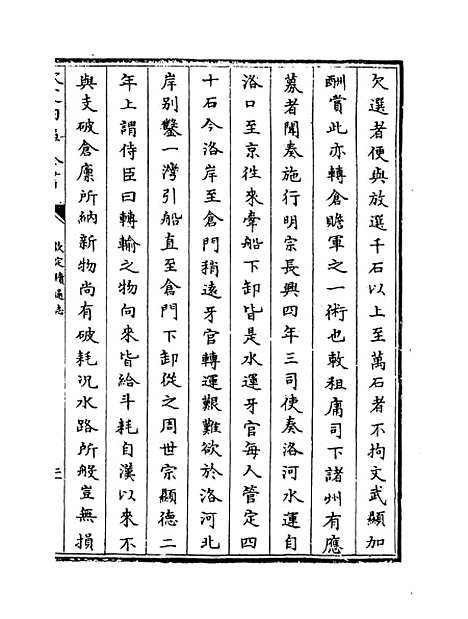 欠選者便與放選千石以上至萬石者不拘文武顯加
酬賞此亦轉倉贍軍之一術也敕租庸司下諸州有應
募者聞奏施行明宗長興四年三司使奏洛河水運自
洛口至京往來牽船下卸皆是水運牙官每人管定四
十石今洛岸至倉門稍遠牙官轉運艱難欲於洛河北
岸別鑿一灣引船直至倉門下卸從之周世宗顯德二
年上謂侍臣曰轉輸之物向來皆給斗耗自漢以來不
與支破倉廩所納新物尚有破耗況水路所般豈無損
欽定續通志
三